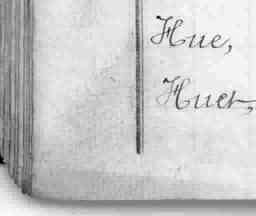 Hue,
Huet,